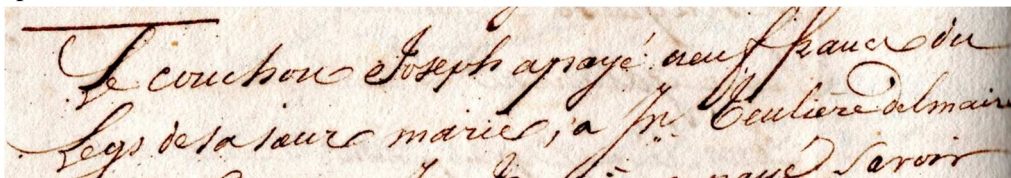 Le couchou Joseph a payé neuf francs du
Legs de sa sœur marie, a Jn. Teulière delmaire
payé Savoir